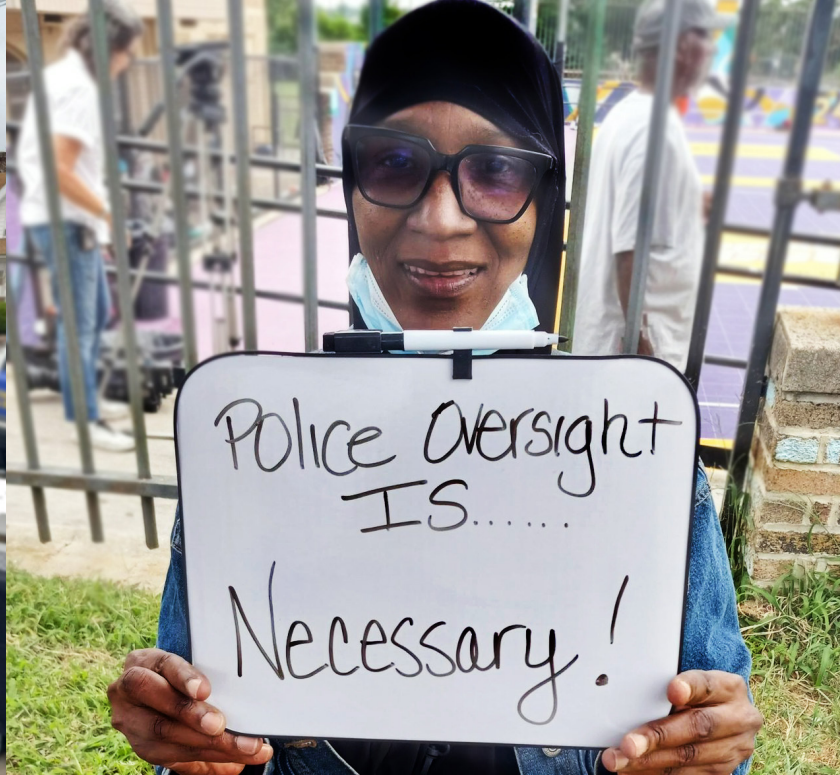 Police Oversight
IS......
Necessary!